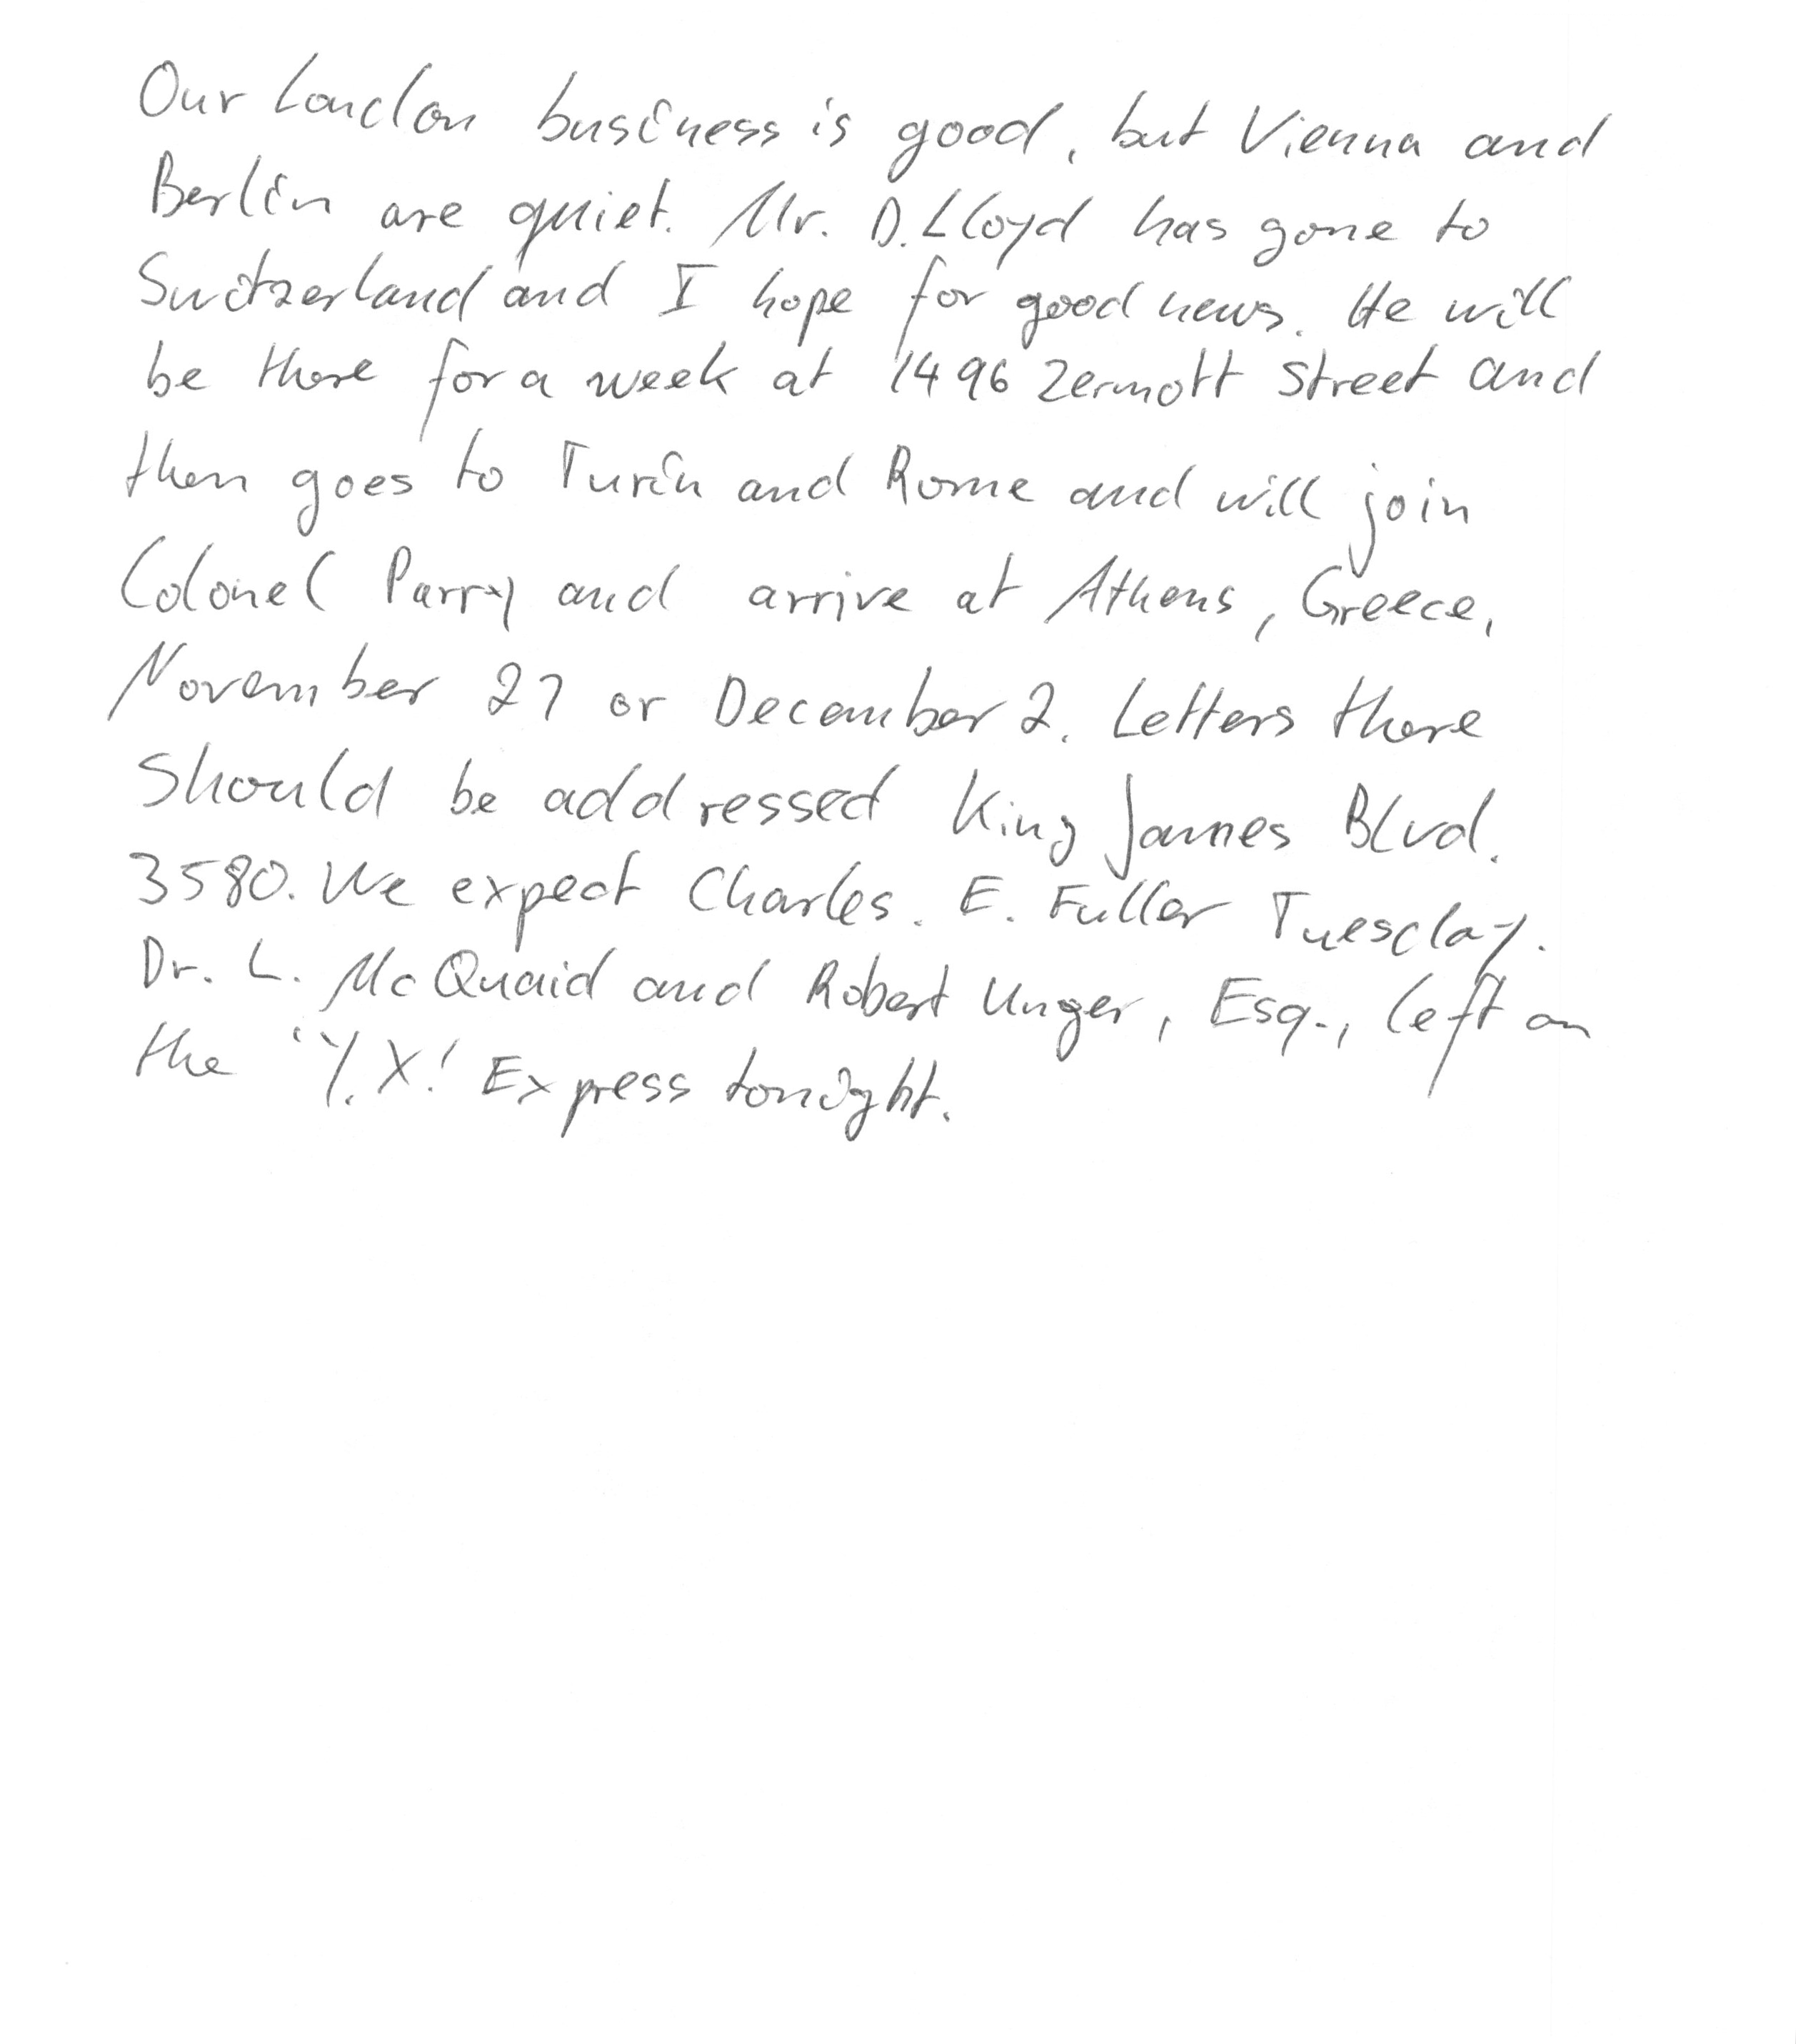 Our London business is good, but Vienna and
Berlin are quiet. Mr. D. Lloyd has gone to
Switzerland and I hope for good news. He will
be there for a week at 1496 Zermott Street and
then goes to Turin and Rome and will join
Colonel Parry and arrive at Athens, Greece,
November 27 or December 2. Letters there
should be addressed King James Blvd.
3580. We expect Charles. E. Fuller Tuesday.
Dr. L. McQuaid and Robert Unger, Esq., left on
the 'Y.X.' Express tonight.